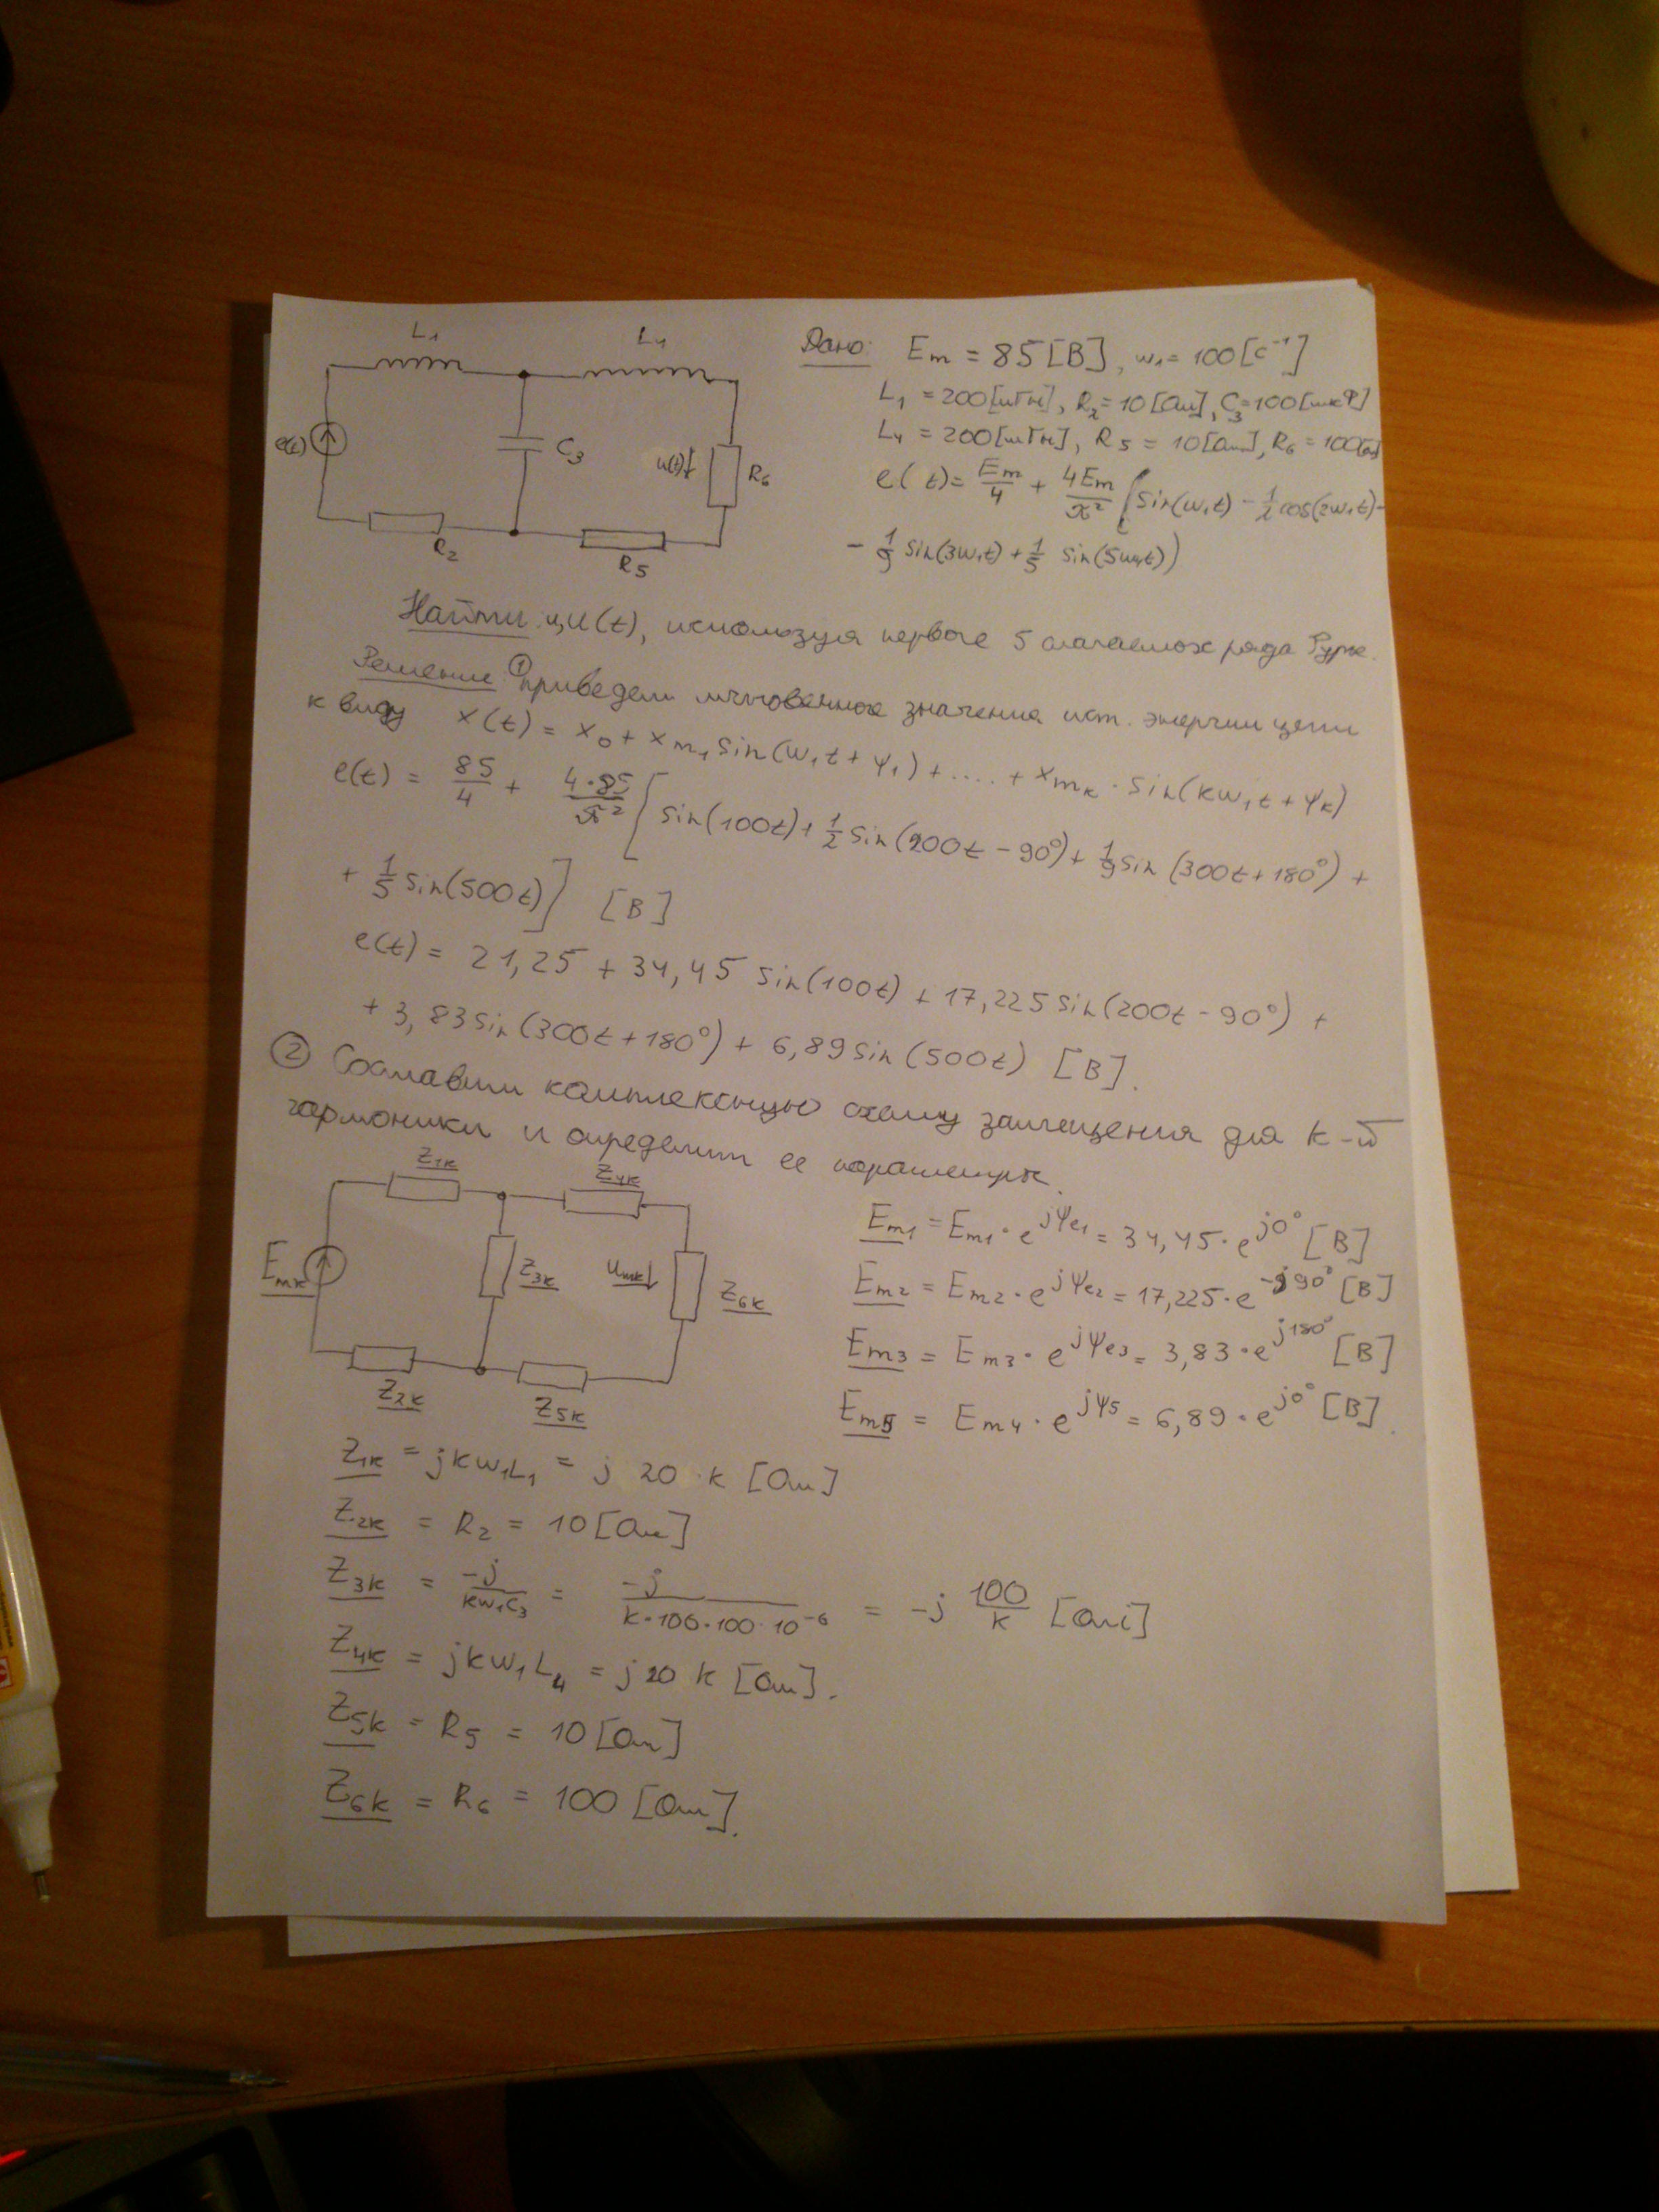 L₁ L₄
e(t) C₃ u(t) R₆
R₂ R₅
Дано: Em = 85 [В], w₁ = 100 [c⁻¹]
L₁ = 200 [мГн], R₂ = 10 [Ом], C₃ = 100 [мкФ]
L₄ = 200 [мГн], R₅ = 10 [Ом], R₆ = 100 [Ом]
e(t) = Em/4 + 4Em/π² (sin(w₁t) - 1/2 cos(2w₁t) -
- 1/9 sin(3w₁t) + 1/5 sin(5w₁t))
Найти: u(t), используя первые 5 слагаемых ряда Фурье.
Решение ① приведем мгновенное значение ист. энергии цепи
к виду x(t) = x₀ + xm₁ sin(w₁t + ψ₁) + .... + xmк · sin(kw₁t + ψк)
e(t) = 85/4 + 4·85/π² [sin(100t) + 1/2 sin(200t - 90°) + 1/9 sin(300t + 180°) +
+ 1/5 sin(500t)] [В]
e(t) = 21,25 + 34,45 sin(100t) + 17,225 sin(200t - 90°) +
+ 3,83 sin(300t + 180°) + 6,89 sin(500t) [В].
② Составим комплексную схему замещения для k-й
гармоники и определим ее параметры.
Z1к Z4к
Emк Z3к Umк Z6к
Z2к Z5к
Em1 = Em1 · e^jψe1 = 34,45 · e^j0° [В]
Em2 = Em2 · e^jψe2 = 17,225 · e^-j90° [В]
Em3 = Em3 · e^jψe3 = 3,83 · e^j180° [В]
Em5 = Em4 · e^jψ5 = 6,89 · e^j0° [В].
Z1к = jkw₁L₁ = j 20 · k [Ом]
Z2к = R₂ = 10 [Ом]
Z3к = -j/kw₁C₃ = -j/k·100·100·10⁻⁶ = -j 100/k [Ом]
Z4к = jkw₁L₄ = j 20 k [Ом].
Z5к = R₅ = 10 [Ом]
Z6к = R₆ = 100 [Ом].